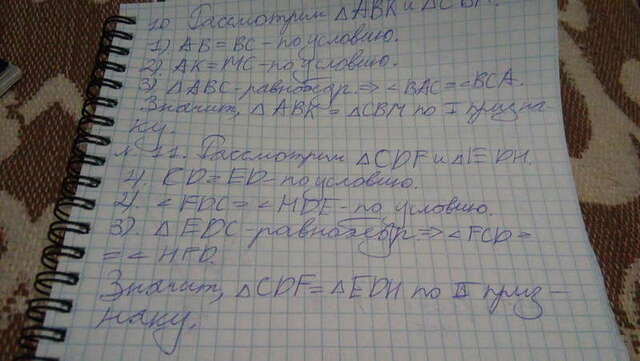 10. Рассмотрим △ABK и △CBM.
1) AB = BC - по условию.
2) AK = MC - по условию.
3) △ABC - равнобедр. ⇒ ∠BAC = ∠BCA.
Значит, △ABK = △CBM по I призна-
ку.
№ 11. Рассмотрим △CDF и △EDH.
1) CD = ED - по условию.
2) ∠FDC = ∠HDE - по условию.
3) △EDC - равнобедр ⇒ ∠FCD =
= ∠HED.
Значит, △CDF = △EDH по II приз-
наку.